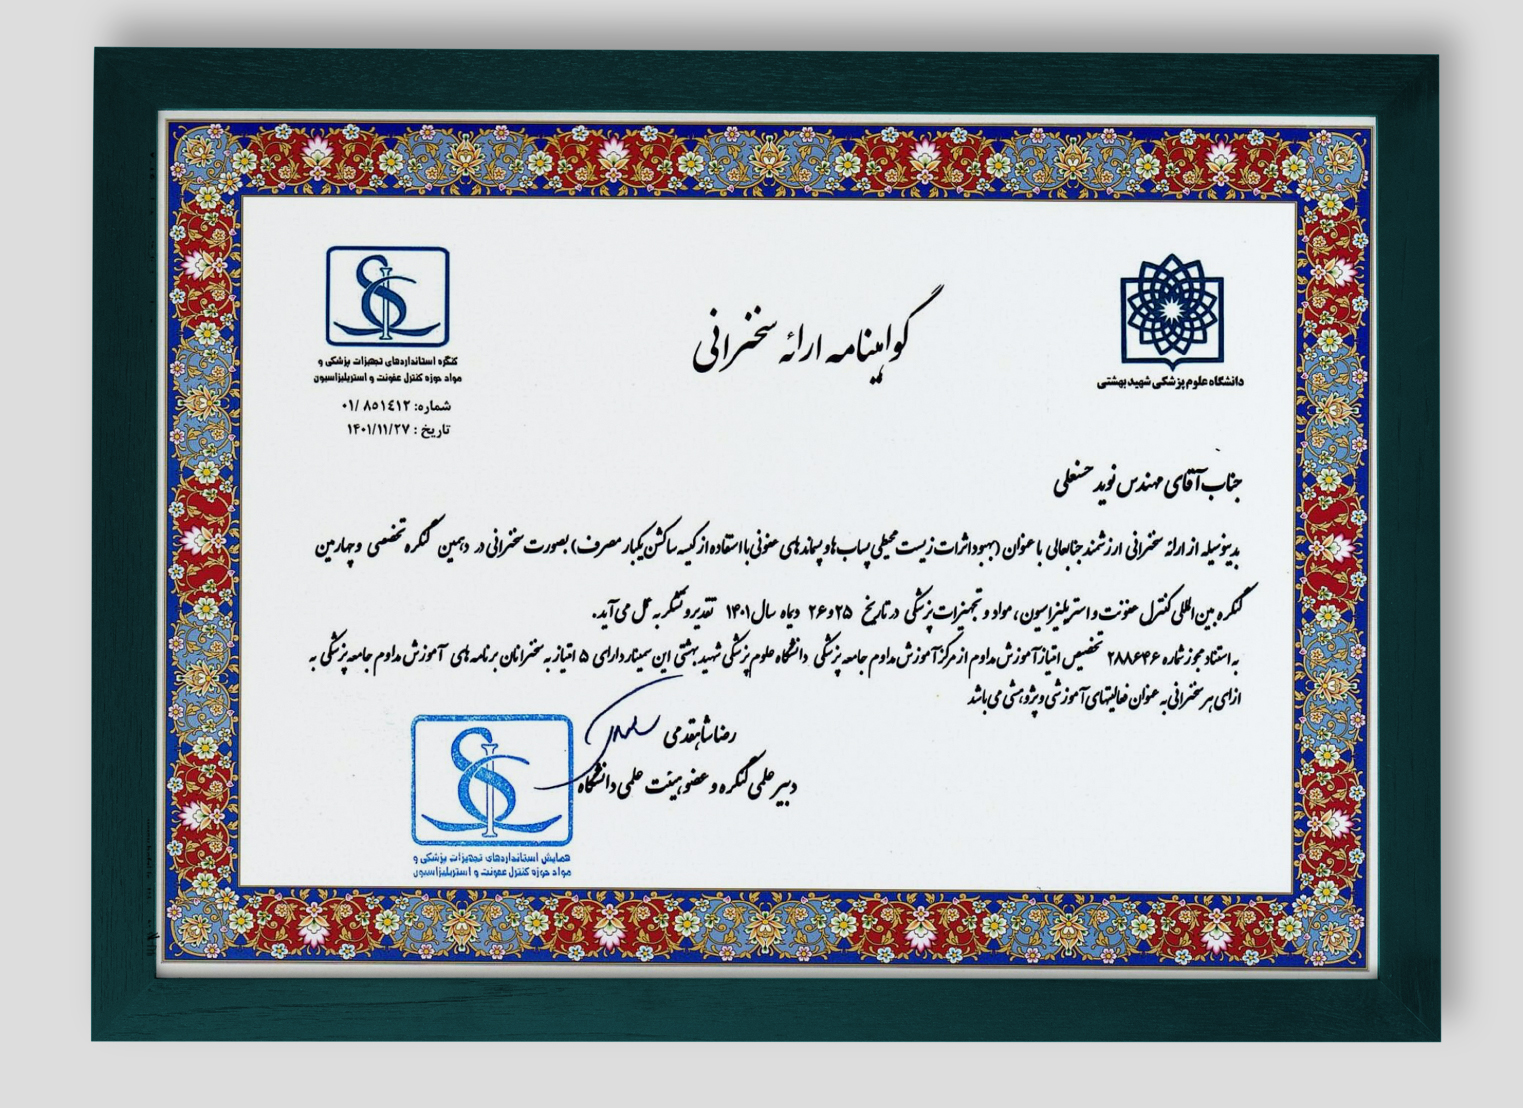 دانشگاه علوم پزشکی شهید بهشتی
گواهینامه ارائه سخنرانی
کنگره استانداردهای تجهیزات پزشکی و
مواد حوزه کنترل عفونت و استریلیزاسیون
شماره: ۰۱/ ۸۵۱۴۱۲
تاریخ : ۱۴۰۱/۱۱/۲۷
جناب آقای مهندس نوید حسنعلی
بدینوسیله از ارائه سخنرانی ارزشمند جنابعالی با عنوان (بهبود اثرات زیست محیطی پساب ها و پسماندهای عفونی با استفاده از کیسه ساکشن یکبار مصرف) بصورت سخنرانی در دهمین کنگره تخصصی و چهارمین
کنگره بین المللی کنترل عفونت و استریلیزاسیون، مواد و تجهیزات پزشکی در تاریخ ۲۵ و ۲۶ دیماه سال ۱۴۰۱ تقدیر و تشکر به عمل می آید.
به استناد مجوز شماره ۲۸۸۶۴۶ تخصیص امتیاز آموزش مداوم از مرکز آموزش مداوم جامعه پزشکی دانشگاه علوم پزشکی شهید بهشتی این سمینار دارای ۵ امتیاز به سخنرانان برنامه های آموزش مداوم جامعه پزشکی به
ازای هر سخنرانی به عنوان فعالیتهای آموزشی و پژوهشی می باشد
رضا شاهقدمی
دبیر علمی کنگره و عضو هیئت علمی دانشگاه
همایش استانداردهای تجهیزات پزشکی و
مواد حوزه کنترل عفونت و استریلیزاسیون